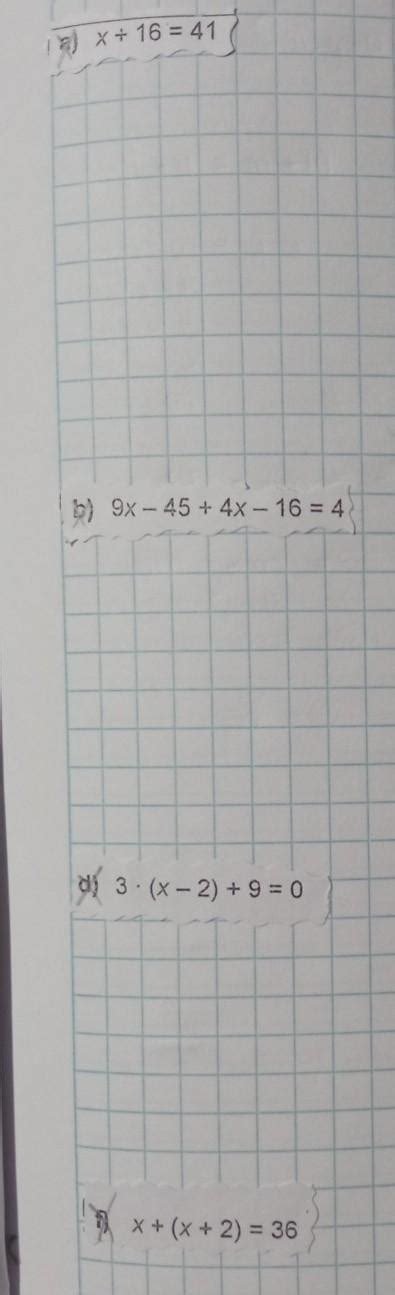 a) x + 16 = 41
b) 9x – 45 + 4x – 16 = 4
d) 3 · (x – 2) + 9 = 0
x + (x + 2) = 36